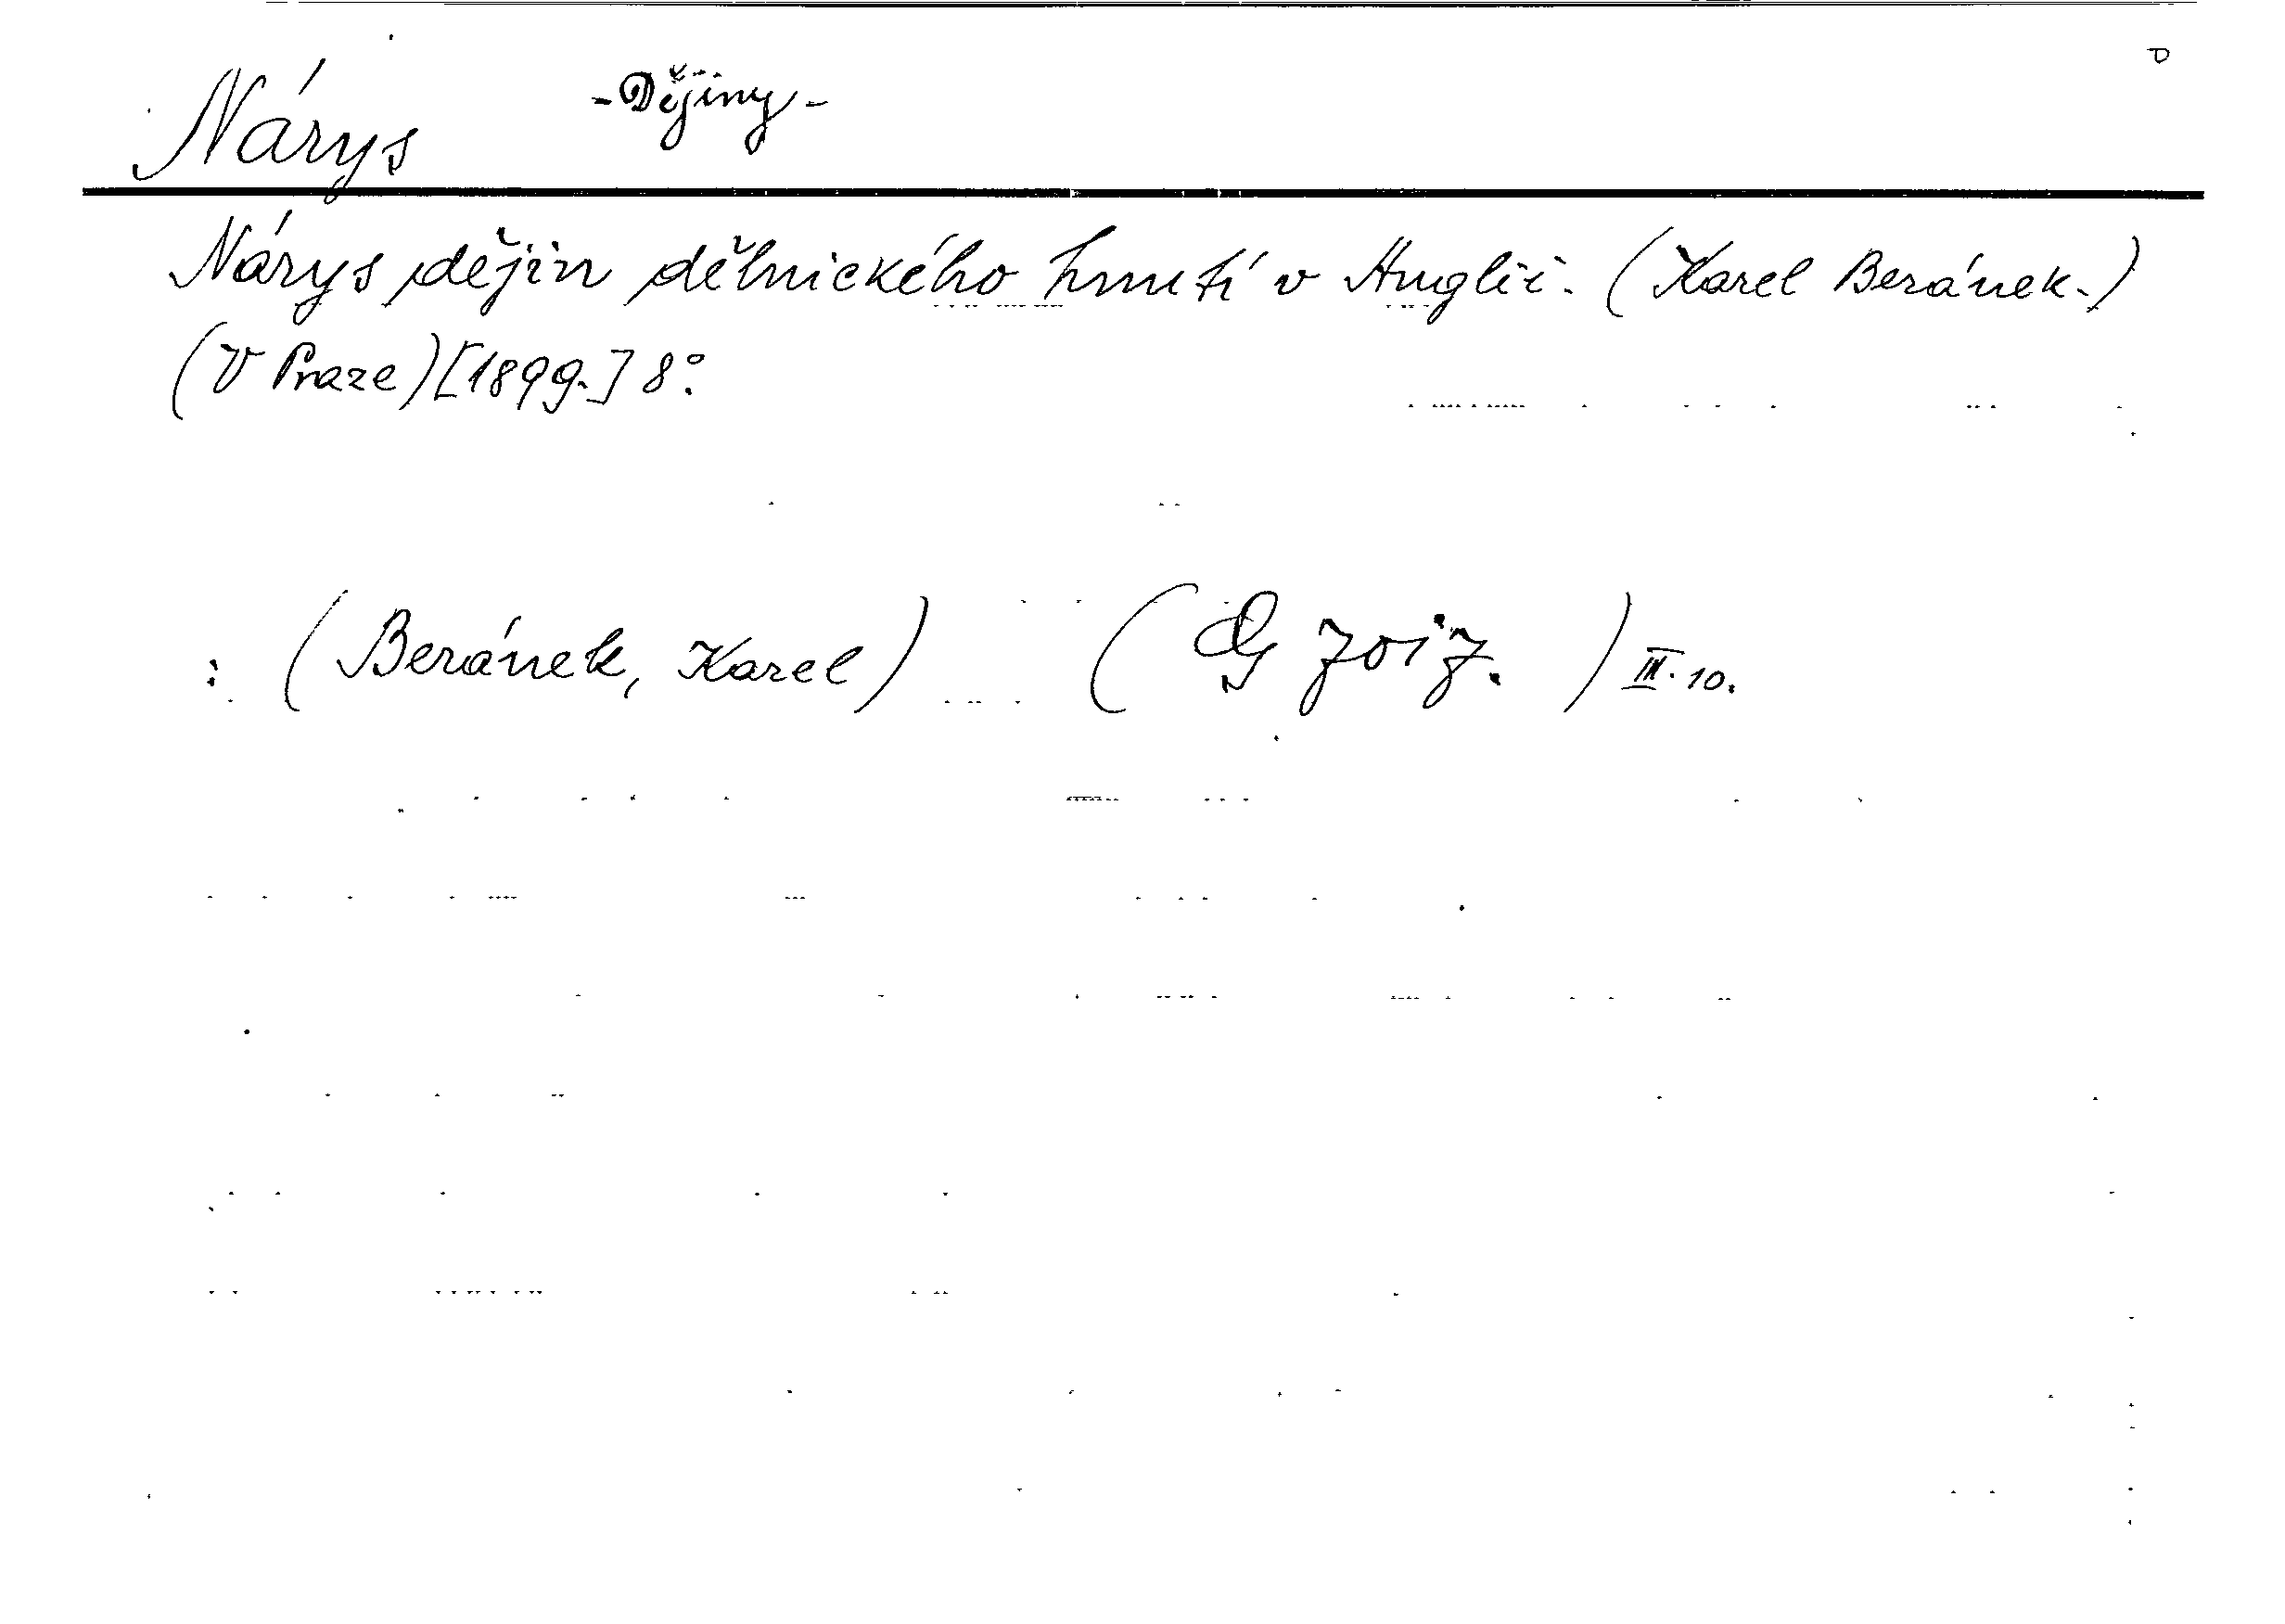 Nárys -Dějiny-
Nárys dějin dělnického hnutí v Anglii. (Karel Beránek.)
(V Praze) [1899.] 8°.
: (Beránek, Karel) ( ) III. 10.